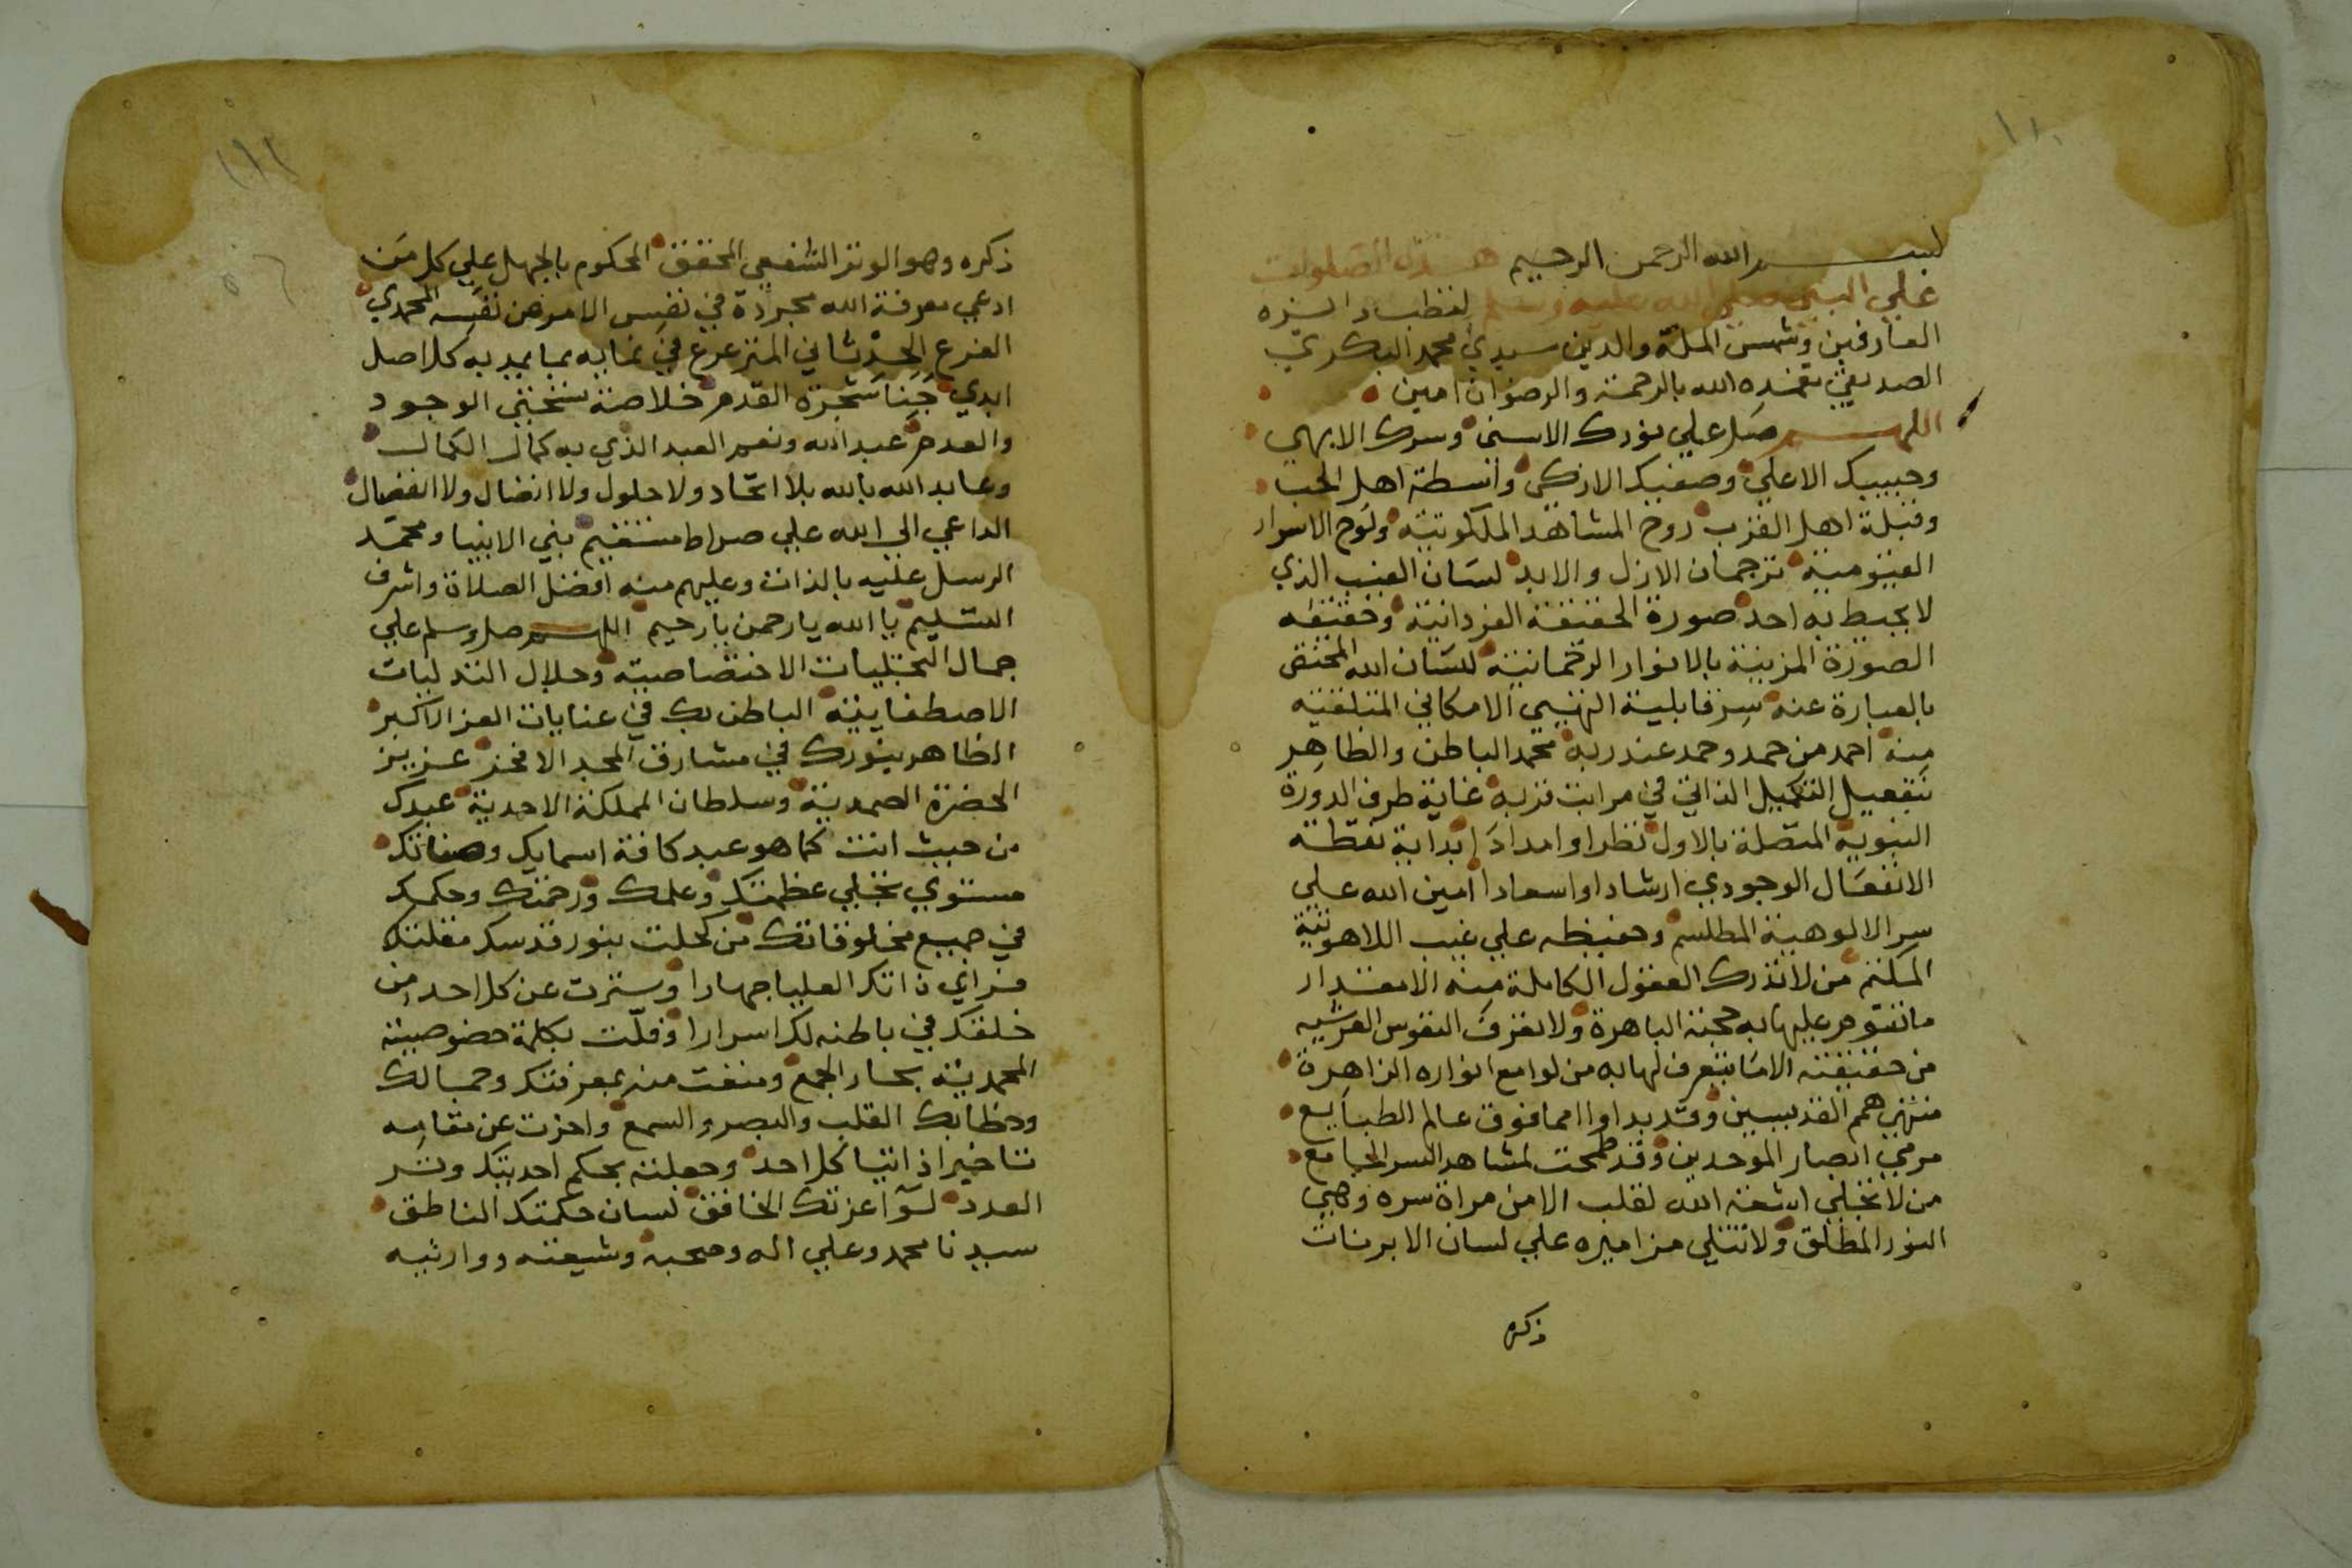 بسم الله الرحمن الرحيم هذه الصلوات
علي النبي صلي الله عليه وسلم لقطب دائره
العارفين وشمس الملة والدين سيدي محمد البكري
الصديقي تغمده الله بالرحمة والرضوان امين
اللهم صل علي نورك الاسنى وسرك الابهى
وحبيبك الاعلي وصفيك الازكى واسطة اهل الحب
وقبلة اهل القرب روح المشاهد الملكوتية ولوح الاسرار
القيومية ترجمان الازل والابد لسان الغيب الذي
لا يحيط به احد صورة الحقيقة الفردانية وحقيقه
الصورة المزينة بالانوار الرحمانية لسان الله المختص
بالعبارة عنه سر قابلية التهيي الامكاني المتلقيه
منه احمد من حمد وحمد عند ربه محمد الباطن والظاهر
بتفعيل التكميل الذاتي في مراتب قربه غاية طرف الدورة
النبوية المتصلة بالاول نظرا وامدادا بداية نقطة
الانفعال الوجودي ارشادا واسعادا امين الله علي
سر الالوهية المطلسم وحفيظه علي غيب اللاهوتية
المكتم من لا تدرك العقول الكاملة منه الا مقدار
ما تقوم عليها به حجته الباهرة ولا تعرف النفوس العرشيه
من حقيقته الا ما يتعرف لها به من لوامع انواره الزاهرة
منتهي همم القدسيين وقد بداوا مما فوق عالم الطبايع
مرمي ابصار الموحدين وقد طمحت لمشاهد السر الجامع
من لا تجلي اشعة الله لقلب الا من مراة سره وهي
النور المطلق ولا تتلي مزاميره علي لسان الا برنات
ذكره
ذكره وهو الوتر الشفعي المحقق المحكوم بالجهل علي كل من
ادعي معرفة الله مجردة في نفس الامر عن نفسه المحمدي
الفرع الحدثاني المترعرع في نمايه بما يمد به كل اصل
ابدي جنا شجرة القدم خلاصة نسختي الوجود
والعدم عبد الله ونعم العبد الذي به كمال الكمال
وعابد الله بالله بلا اتحاد ولا حلول ولا اتصال ولا انفصال
الداعي الي الله علي صراط مستقيم نبي الانبيا وممد
الرسل عليه بالذات وعليهم منه افضل الصلاة واشرف
التسليم يا الله يا رحمن يا رحيم اللهم صل وسلم علي
جمال التجليات الاختصاصية وجلال التدليات
الاصطفايية الباطن بك في غيابات العز الاكبر
الظاهر بنورك في مشارق المجد الافخر عزيز
الحضرة الصمدية وسلطان المملكة الاحدية عبدك
من حيث انت كما هو عبد كافة اسمايك وصفاتك
مستوي تجلي عظمتك وعلمك ورحمتك وحكمك
في جميع مخلوقاتك من كحلت بنور قدسك مقلته
فراي ذاتك العليا جهارا وسترت عن كل احد من
خلقك في باطنه لك اسرارا وفلقت بكلمة خصوصيته
المحمدية بحار الجمع ومتعت منه بمعرفتك وجمالك
وخطابك القلب والبصر والسمع واخرت عن مقامه
تاخيرا ذاتيا كل احد وجعلته بحكم احديتك وتر
العدد لوا عزتك الخافق لسان حكمتك الناطق
سيدنا محمد وعلي اله وصحبه وشيعته ووارثيه